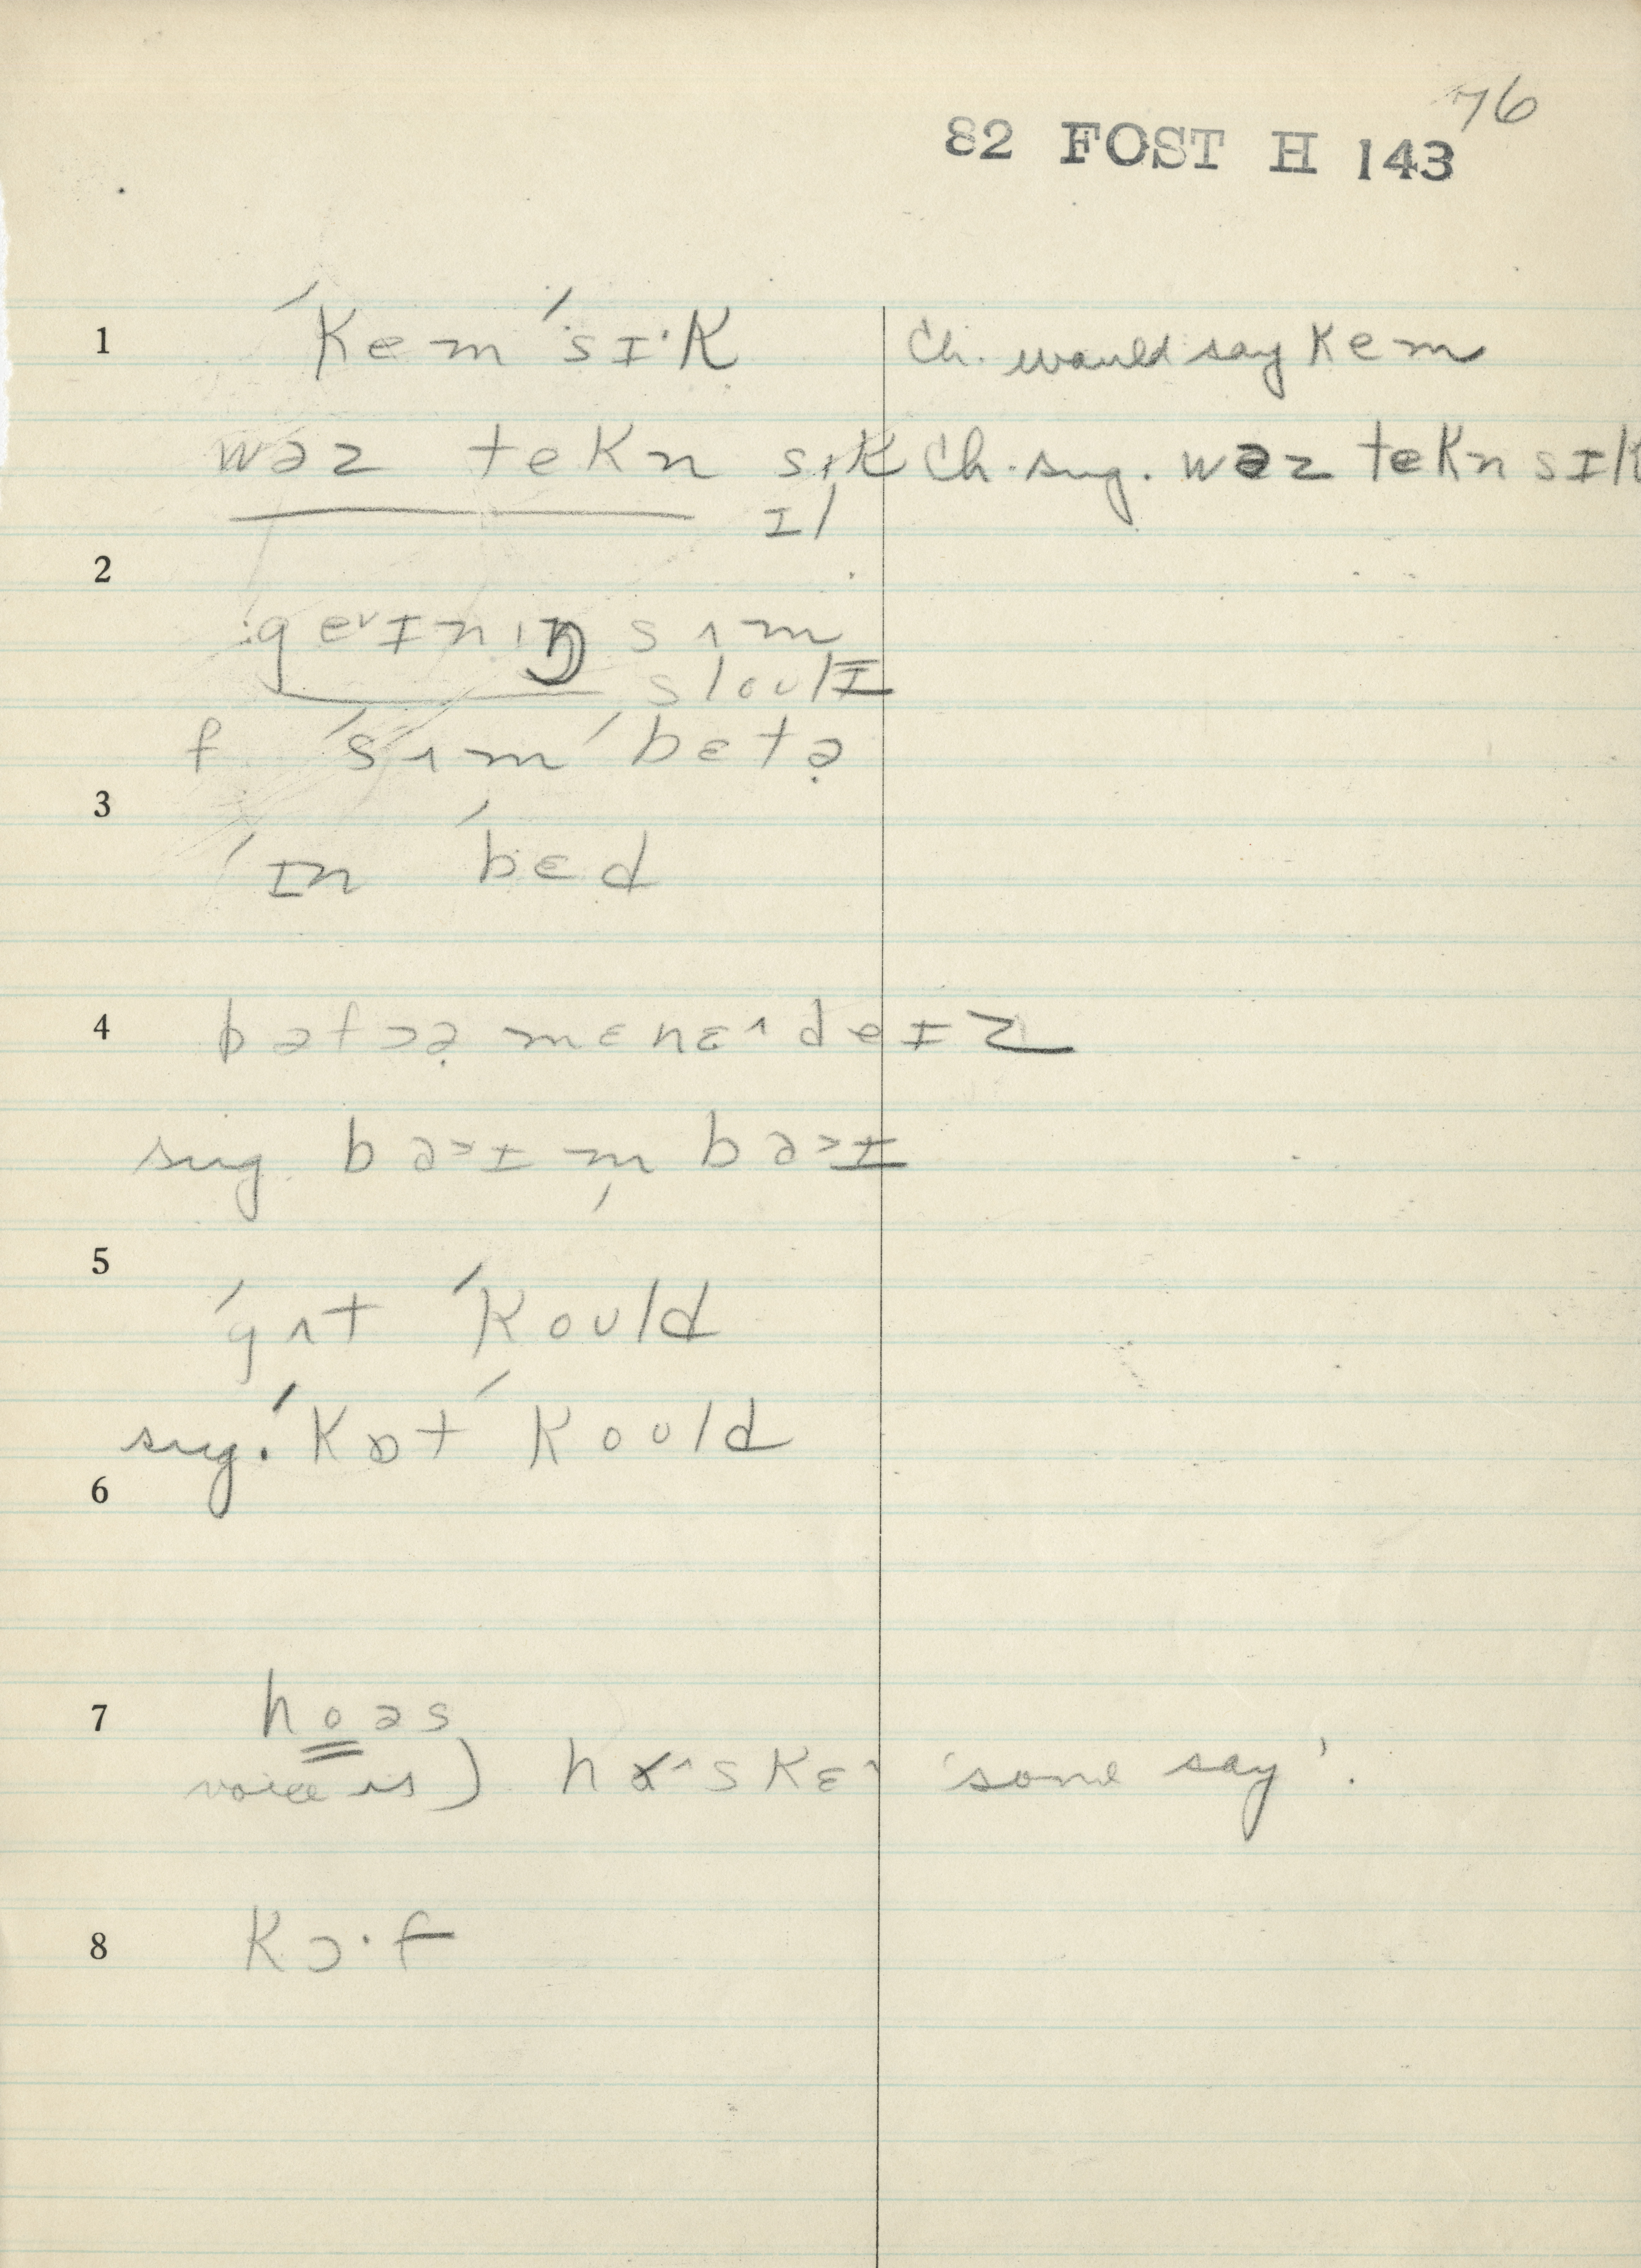 76
82 FOST H 143
1 ˈkem ˈsɪ·k Ch. would say kem
wəz tekn sɪk Ch. sug. wəz tekn sɪk
ɪl
2
geᵛɪnɪŋ sʌm
sloʊlɪ
f ˈsʌm ˈbɛtə̣
3
ˈɪn ˈbɛd
4 bəfɔə̣ mɛnɛ^ deɪz
sug bəᵓɪ m̩ bəᵓɪ
5
ˈgʌt ˈkoʊld
sug. ˈkɒt ˈkoʊld
6
7 hoəs
voice is) hɤ^skɛ^ 'some say'.
8 kɔ·f